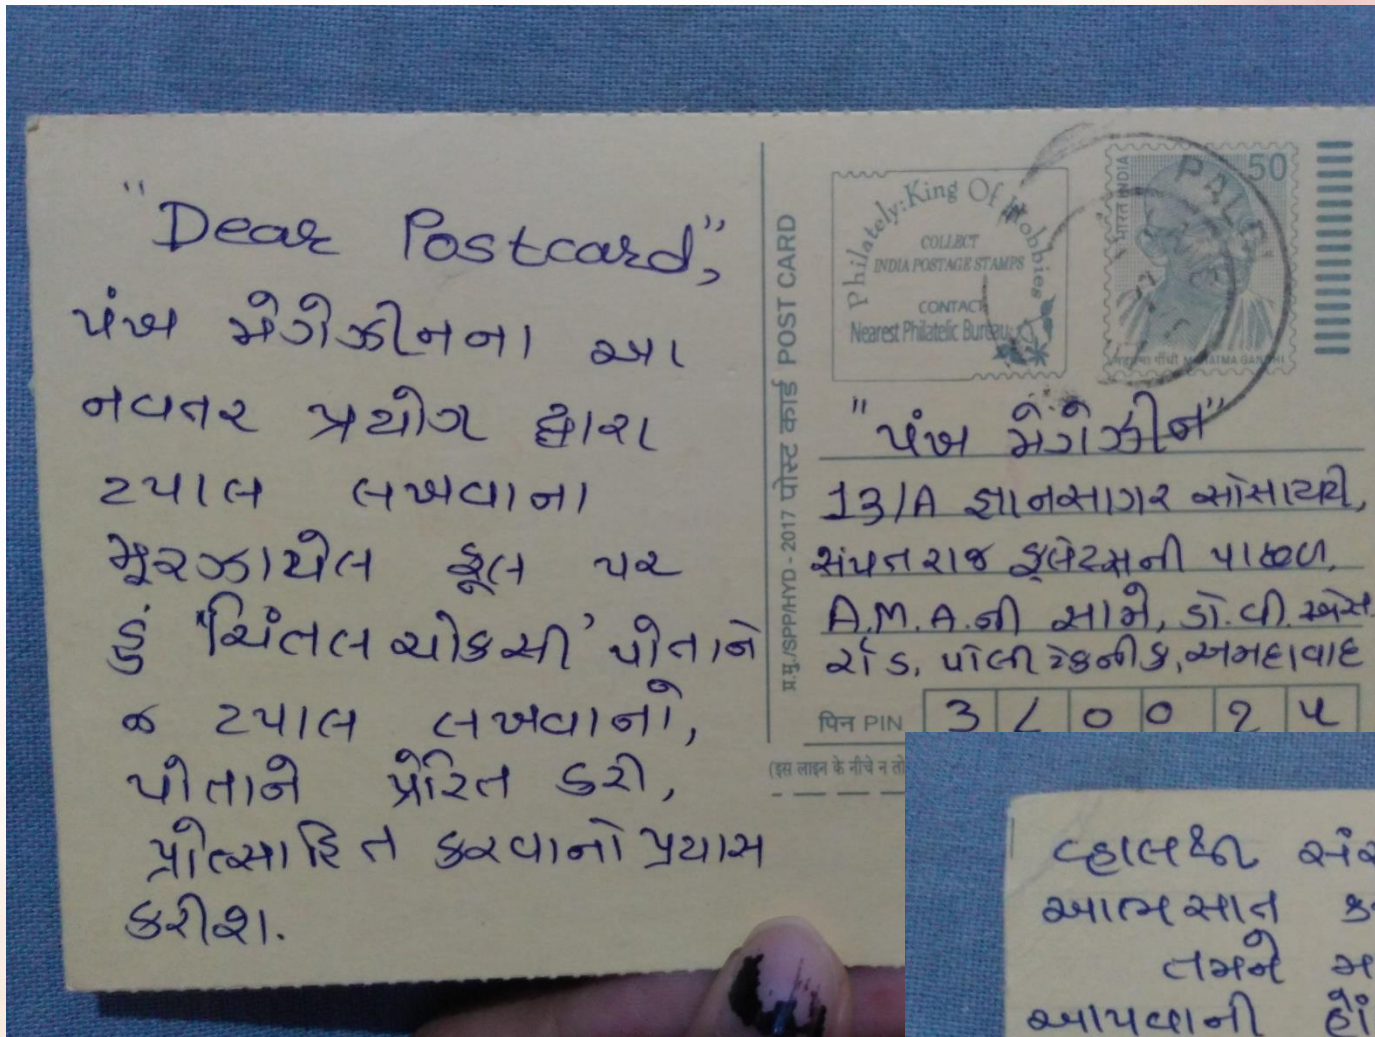 "Dear Postcard",
પંખ મેગેઝીનના આ
નવતર પ્રયોગ દ્વારા
ટપાલ લખવાના
મૂરઝાયેલ ફૂલ પર
હું 'ચિંતલ ચોકસી' પોતાને
જ ટપાલ લખવાનો,
પોતાને પ્રેરિત કરી,
પ્રોત્સાહિત કરવાનો પ્રયાસ
કરીશ.
प्र.मु./SPP/HYD - 2017 पोस्ट कार्ड POST CARD
Philately: King Of Hobbies
COLLECT
INDIA POSTAGE STAMPS
CONTACT
Nearest Philatelic Bureau
50
भारत INDIA
महात्मा गाँधी MAHATMA GANDHI
"પંખ મેગેઝીન"
13/A જ્ઞાનસાગર સોસાયટી,
સંપતરાજ ફ્લેટસની પાછળ,
A.M.A.ની સામે, ડૉ.વી.એસ.
રોડ, પોલીટેકનીક, અમદાવાદ
पिन PIN 3 8 0 0 1 5
(इस लाइन के नीचे न
વ્હાલથી
આત્મસાત
તમને
આપવાની